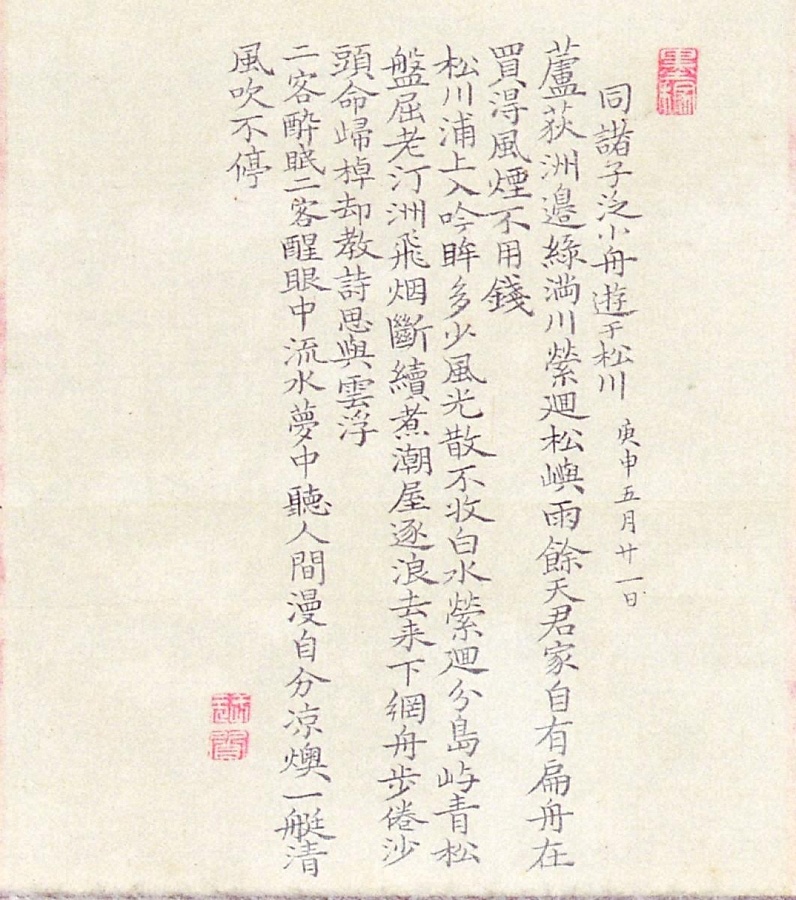 同諸子泛小舟遊于松川 庚申五月廿一日
蘆荻洲邉綠満川縈廻松嶼雨餘天君家自有扁舟在
買得風煙不用錢
松川浦上入吟眸多少風光散不收白水縈廻分島屿青松
盤屈老汀洲飛烟斷續煮潮屋逐浪去来下網舟步倦沙
頭命歸棹却教詩思與雲浮
二客醉眠二客醒眼中流水夢中聽人間漫自分涼燠一艇清
風吹不停